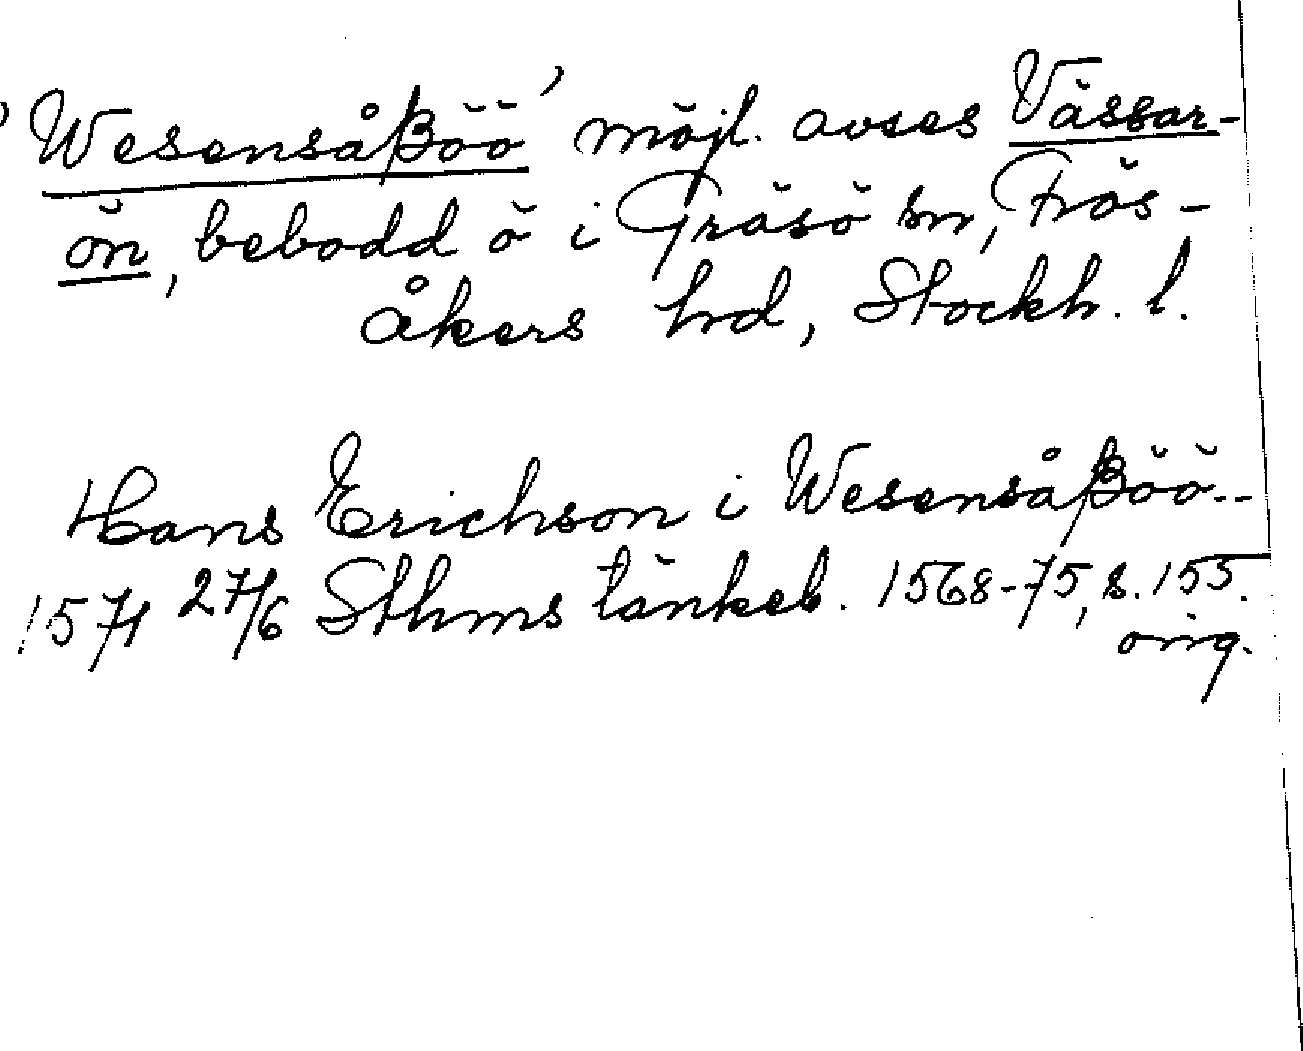 'Wesensåßöö' möjl. avses Vässar-
ön, bebodd ö i Gräsö sn, Frös-
åkers hrd, Stockh. l.
Hans Erichson i Wesensåßöö..
1571 27/6 Sthms tänkeb. 1568-75, s. 155.
orig.